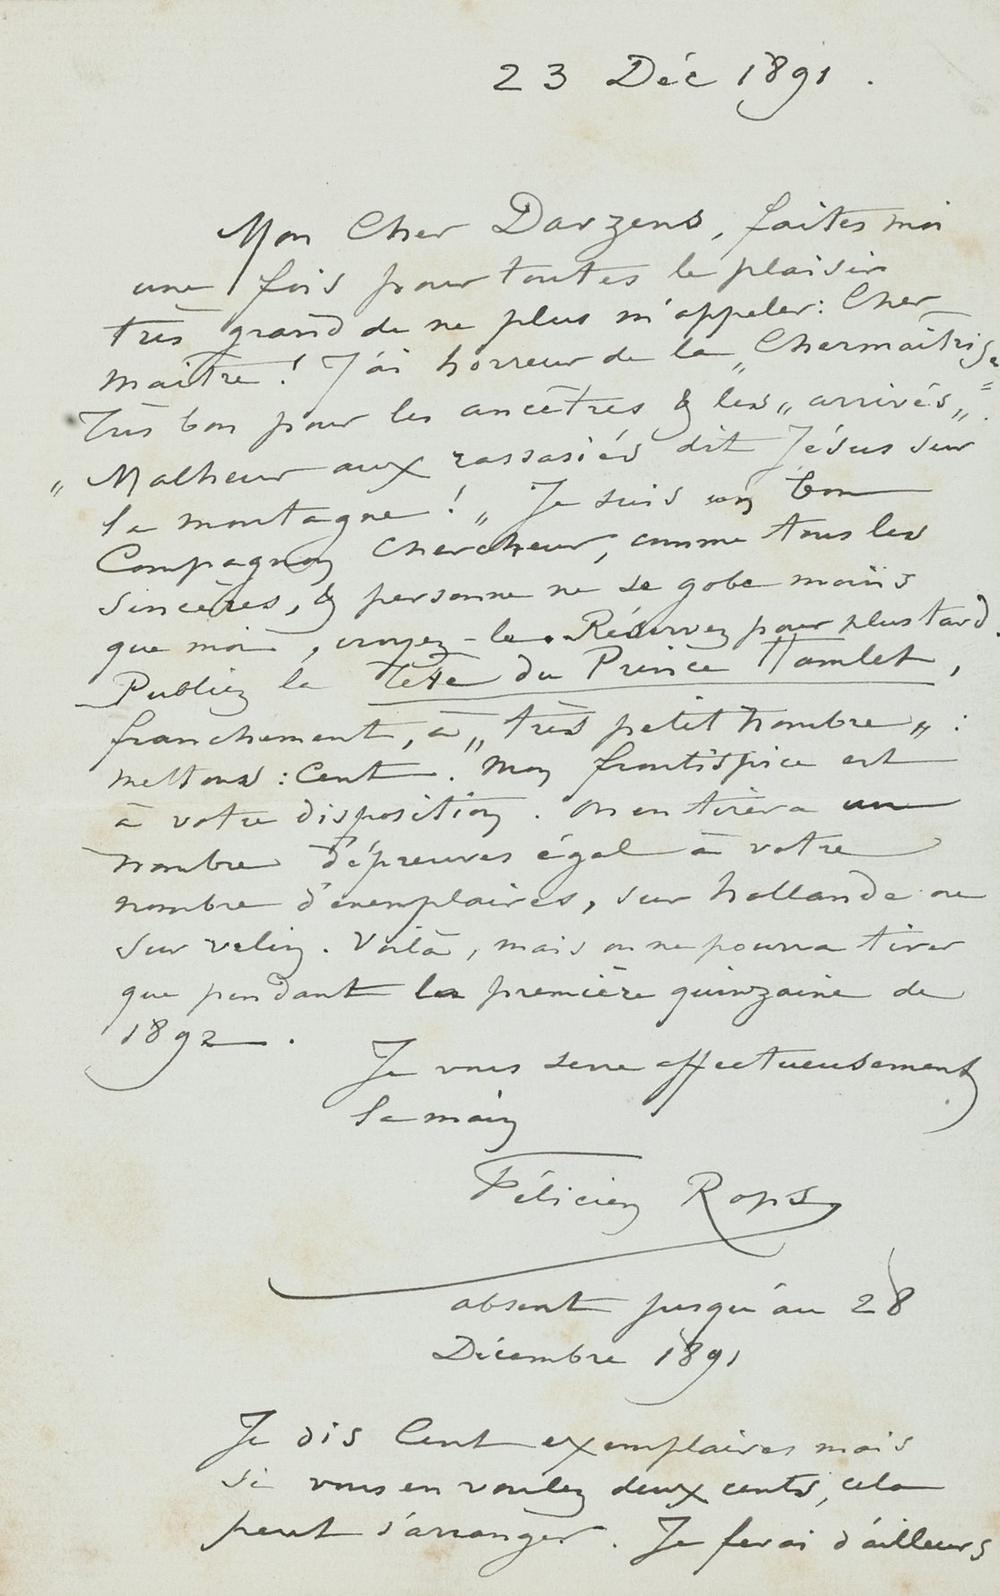 23 Déc 1891.
Mon Cher Darzens, faites moi
une fois pour toutes le plaisir
très grand de ne plus m'appeler: Cher
maître! J'ai horreur de la „Chermaîtrise"
Très bon pour les ancêtres & les „arrivés„.
„Malheur aux rassasiés dit Jésus sur
la montagne!„ Je suis un bon
Compagnon chercheur, comme tous les
sincères, & personne ne se gobe moins
que moi, croyez-le. Réservez pour plus tard.
Publiez le Tête du Prince Hamlet,
franchement, à „très petit nombre„:
mettons: Cent. Mon frontispice est
à votre disposition. On en tirera un
nombre d'épreuves égal à votre
nombre d'exemplaires, sur hollande ou
sur velin. Voilà, mais on ne pourra tirer
que pendant la première quinzaine de
1892.
Je vous serre affectueusement
la main
Félicien Rops
absent jusqu'au 28
Décembre 1891
Je dis Cent exemplaires mais
si vous en voulez deux cents, cela
peut s'arranger. Je ferai d'ailleurs